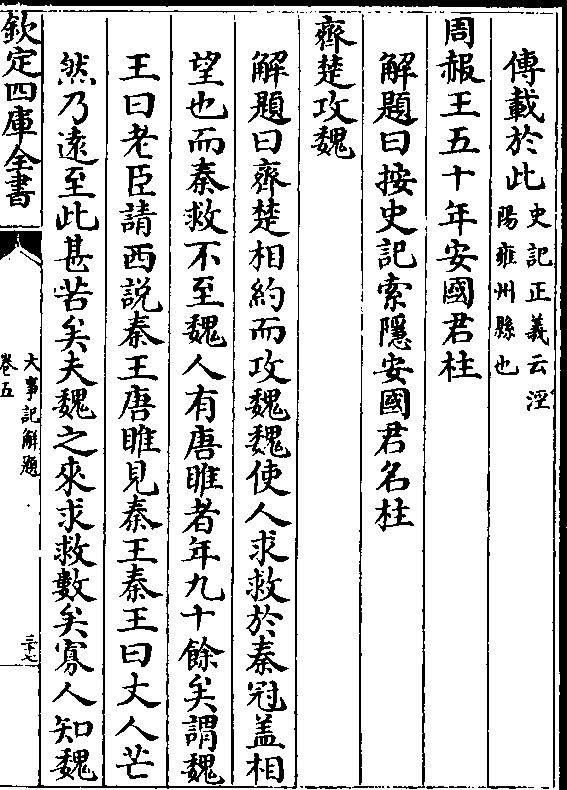 傳載於此史記正義云涇
陽雍州縣也
周赧王五十年安國君柱
解題曰按史記索隱安國君名柱
齊楚攻魏
解題曰齊楚相約而攻魏魏使人求救於秦冠盖相
望也而秦救不至魏人有唐睢者年九十餘矣謂魏
王曰老臣請西說秦王唐睢見秦王秦王曰丈人芒
然乃遠至此甚苦矣夫魏之來求救數矣寡人知魏
欽定四庫全書
大事記解題
卷五
三十七